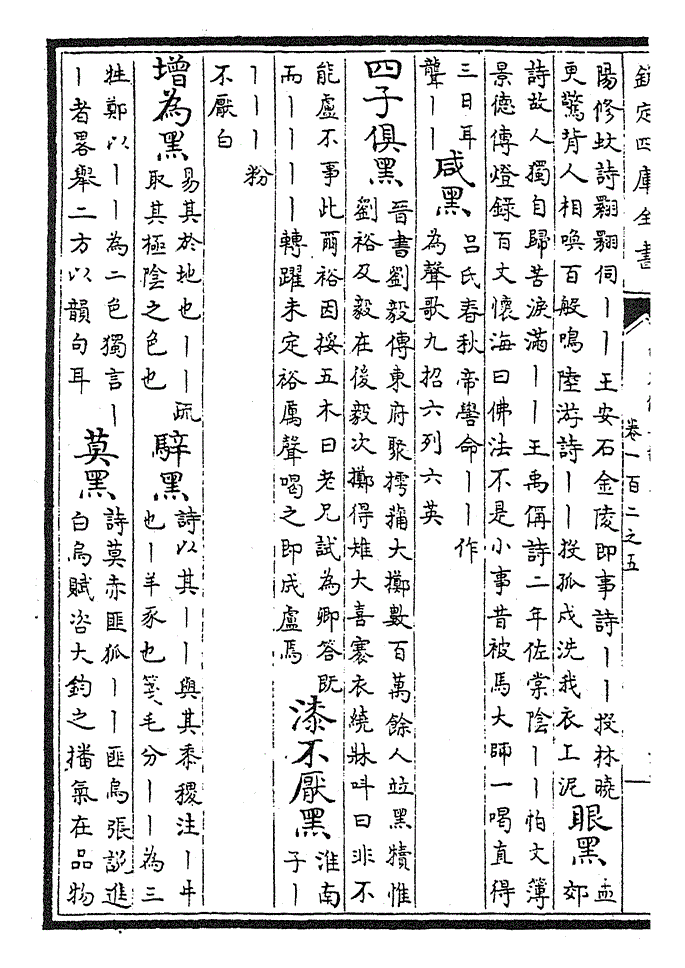 欽定四庫全書
卷一百二之五
陽修蚊詩翾翾伺丨丨王安石金陵即事詩丨丨投林曉
更驚背人相喚百般鳴陸游詩丨丨投孤戍洗我衣上泥
眼黑
孟
郊
詩故人獨自歸苦淚滿丨丨王禹偁詩二年佐棠陰丨丨怕文簿
景德傳燈録百丈懷海曰佛法不是小事昔被馬大師一喝直得
三日耳
聾丨丨
咸黑
吕氏春秋帝嚳命丨丨作
為聲歌九招六列六英
四子俱黑
晉書劉毅傳東府聚摴蒱大擲數百萬餘人竝黑犢惟
劉裕及毅在後毅次擲得雉大喜褰衣繞牀呌曰非不
能盧不事此爾裕因挼五木曰老兄試為卿答既
而丨丨丨丨轉躍未定裕厲聲喝之即成盧焉
漆不厭黑
淮南
子丨
丨丨丨粉
不厭白
增為黑
易其於地也丨丨疏
取其極陰之色也
騂黑
詩以其丨丨與其黍稷注丨牛
也丨羊豕也箋毛分丨丨為三
牲鄭以丨丨為二色獨言丨
丨者畧舉二方以韻句耳
莫黑
詩莫赤匪狐丨丨匪烏張說進
白烏賦咨大鈞之播氣在品物